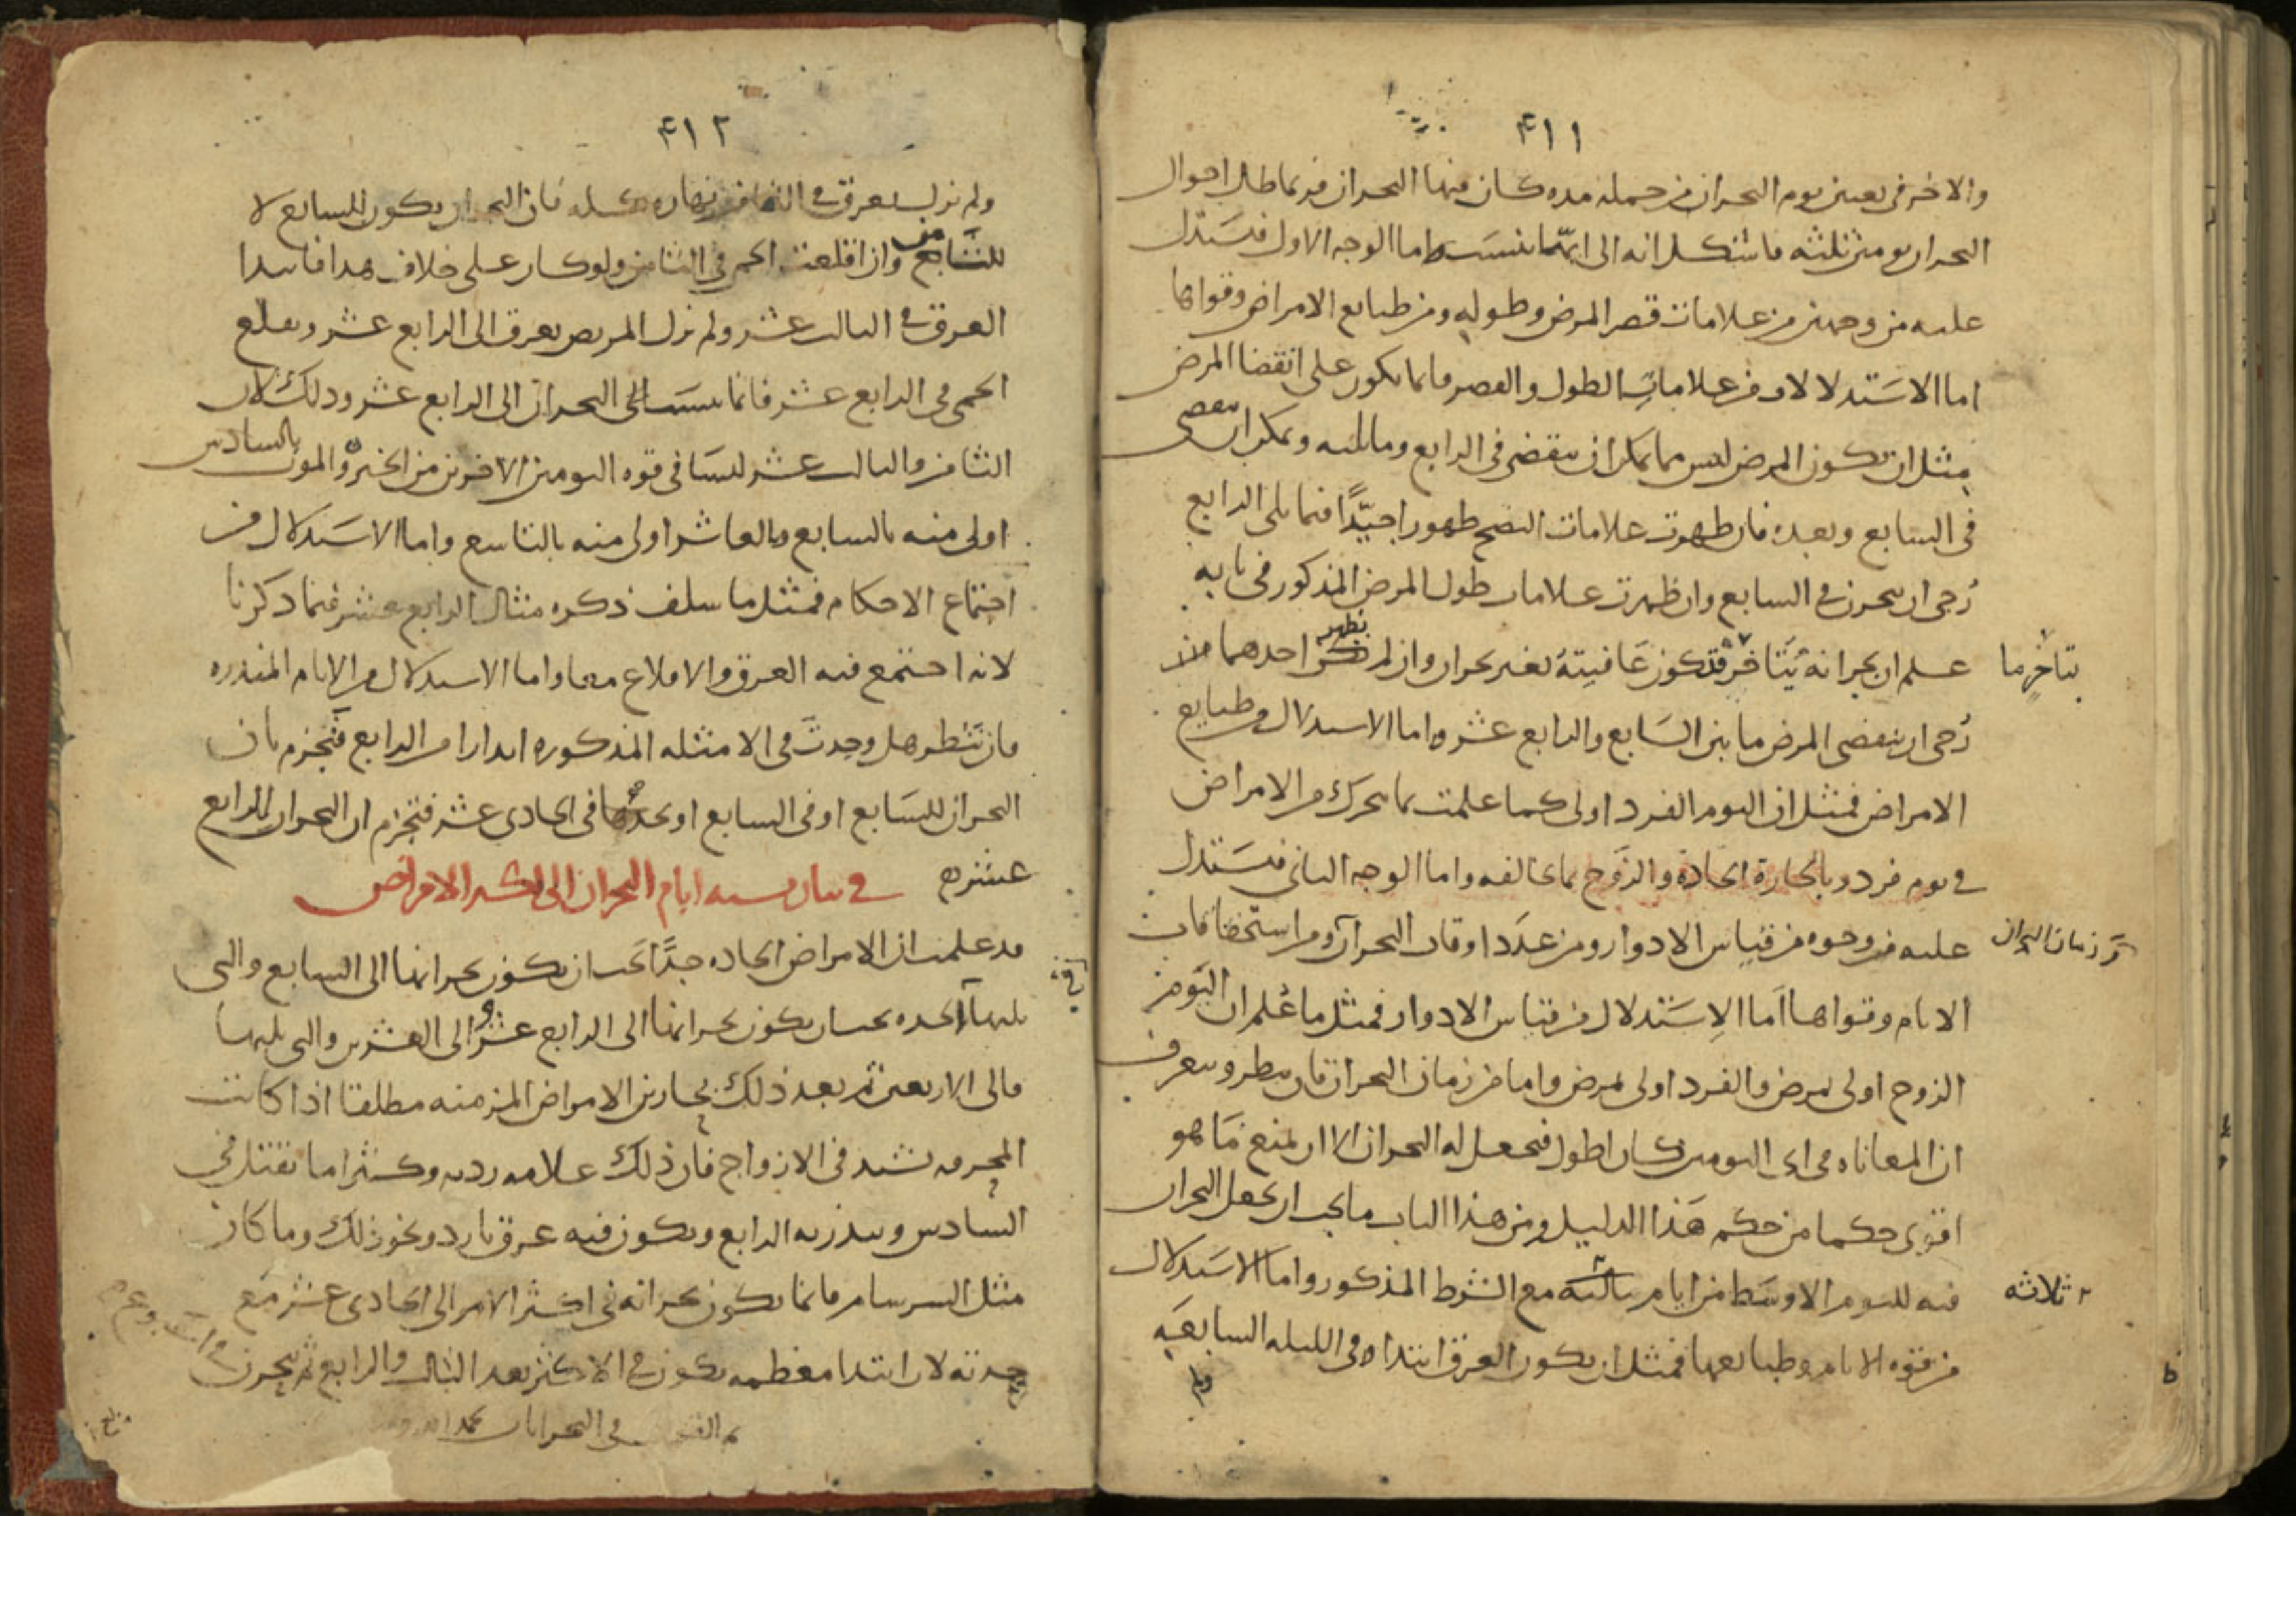 ۴۱۱
والاخر فى تعيين يوم البحران من جملة مده كان فيها البحران فربما طال احوال
البحران يومين ثلثه فاشكل انه الى ايّما ينسب اما الوجه الاول فيستدل
عليه من وجهين من علامات قصر المرض وطوله ومن طبايع الامراض وقواها
اما الاستدلال من علامات الطول والقصر فانما يكون على انقضا المرض
مثل ان يكون المرض ليس مما يمكن ان ينقضى فى الرابع وما يليه ويمكن ان ينقضى
فى السابع وبعده فان ظهرت علامات النضج ظهورا جيّدًا فيما يلى الرابع
رُجى ان يبحرن فى السابع وان ظهرت علامات طول المرض المذكور فى بابه
علم ان بحرانه يتاخر فتكون عافيته بغير بحران وان لم يظهر احدهما
بتاخر ما
رُجى ان ينقضى المرض ما بين السابع والرابع عشره واما الاستدلال من طبايع
الامراض فمثل ان اليوم الفرد اولى كما علمت بما يتحرك من الامراض
فى يوم فرد وبالحارة الحادة والزوج بما يخالفه واما الوجه الثانى فيستدل
عليه من وجوه من قياس الادوار ومن عدد اوقات البحران ومن استحقاقات
زمان البحران
الايام وقواها اما الاستدلال من قياس الادوار فمثل ما عُلم ان اليوم
الزوج اولى بمرض والفرد اولى بمرض واما من زمان البحران فان ينظر ويتعرف
ان المعاناه فى اى اليومين كان اطول فيجعل له البحران الا ان يمنع ما هو
اقوى حكما من حكم هذا الدليل ومن هذا الباب ما يجب ان يجعل البحران
فيه لليوم الاوسط من ايام ثالثه مع الشرط المذكور واما الاستدلال
ثلاثه
من قوه الايام وطبايعها فمثل ان يكون العرق ابتداه فى الليله السابعه
ولم
۴۱۲
ولم يزل يعرق فى الثامن نهاره كله فان البحران يكون للسابع لا
وان اقلعت الحمى فى الثامن ولو كان على خلاف هذا فابتدا
العرق فى الثالث عشر ولم يزل المريض يعرق الى الرابع عشر وتقلع
الحمى فى الرابع عشر فانما ينسب البحران الى الرابع عشر وذلك لان
الثامن والثالث عشر ليسا فى قوه اليومين الاخرين من الخير والموت بالسادس
اولى منه بالسابع وبالعاشر اولى منه بالتاسع واما الاستدلال من
اجتماع الاحكام فمثل ما سلف ذكره مثال الرابع عشر فيما ذكرنا
لانه اجتمع فيه العرق والاقلاع معا واما الاستدلال من الايام المنذره
فان تنظر هل وجدت فى الامثله المذكوره انذارا من الرابع فتجزم بان
البحران للسابع او فى السابع او فى الحادى عشر فتجزم ان البحران للرابع
عشره فى بيان نسبه ايام البحران الى اكثر الامراض
قد علمت ان الامراض الحاده جدًّا يجب ان يكون بحرانها الى السابع والتى
يليها الحده يجب ان يكون بحرانها الى الرابع عشر والى العشرين والتى يليها
فالى الاربعين ثم بعد ذلك بحارين الامراض المزمنه مطلقا اذا كانت
المحرقه تشتد فى الازواج فان ذلك علامه رديه وكثيرا ما تقتل فى
السادس وينذر به الرابع ويكون فيه عرق بارد ونحو ذلك وما كان
مثل السرسام فانما يكون بحرانه فى اكثر الامر الى الحادى عشر مع
حدته لان ابتدا معظمه يكون فى الاكثر بعد الثالث والرابع ثم يبحرن فى
فى البحرانات